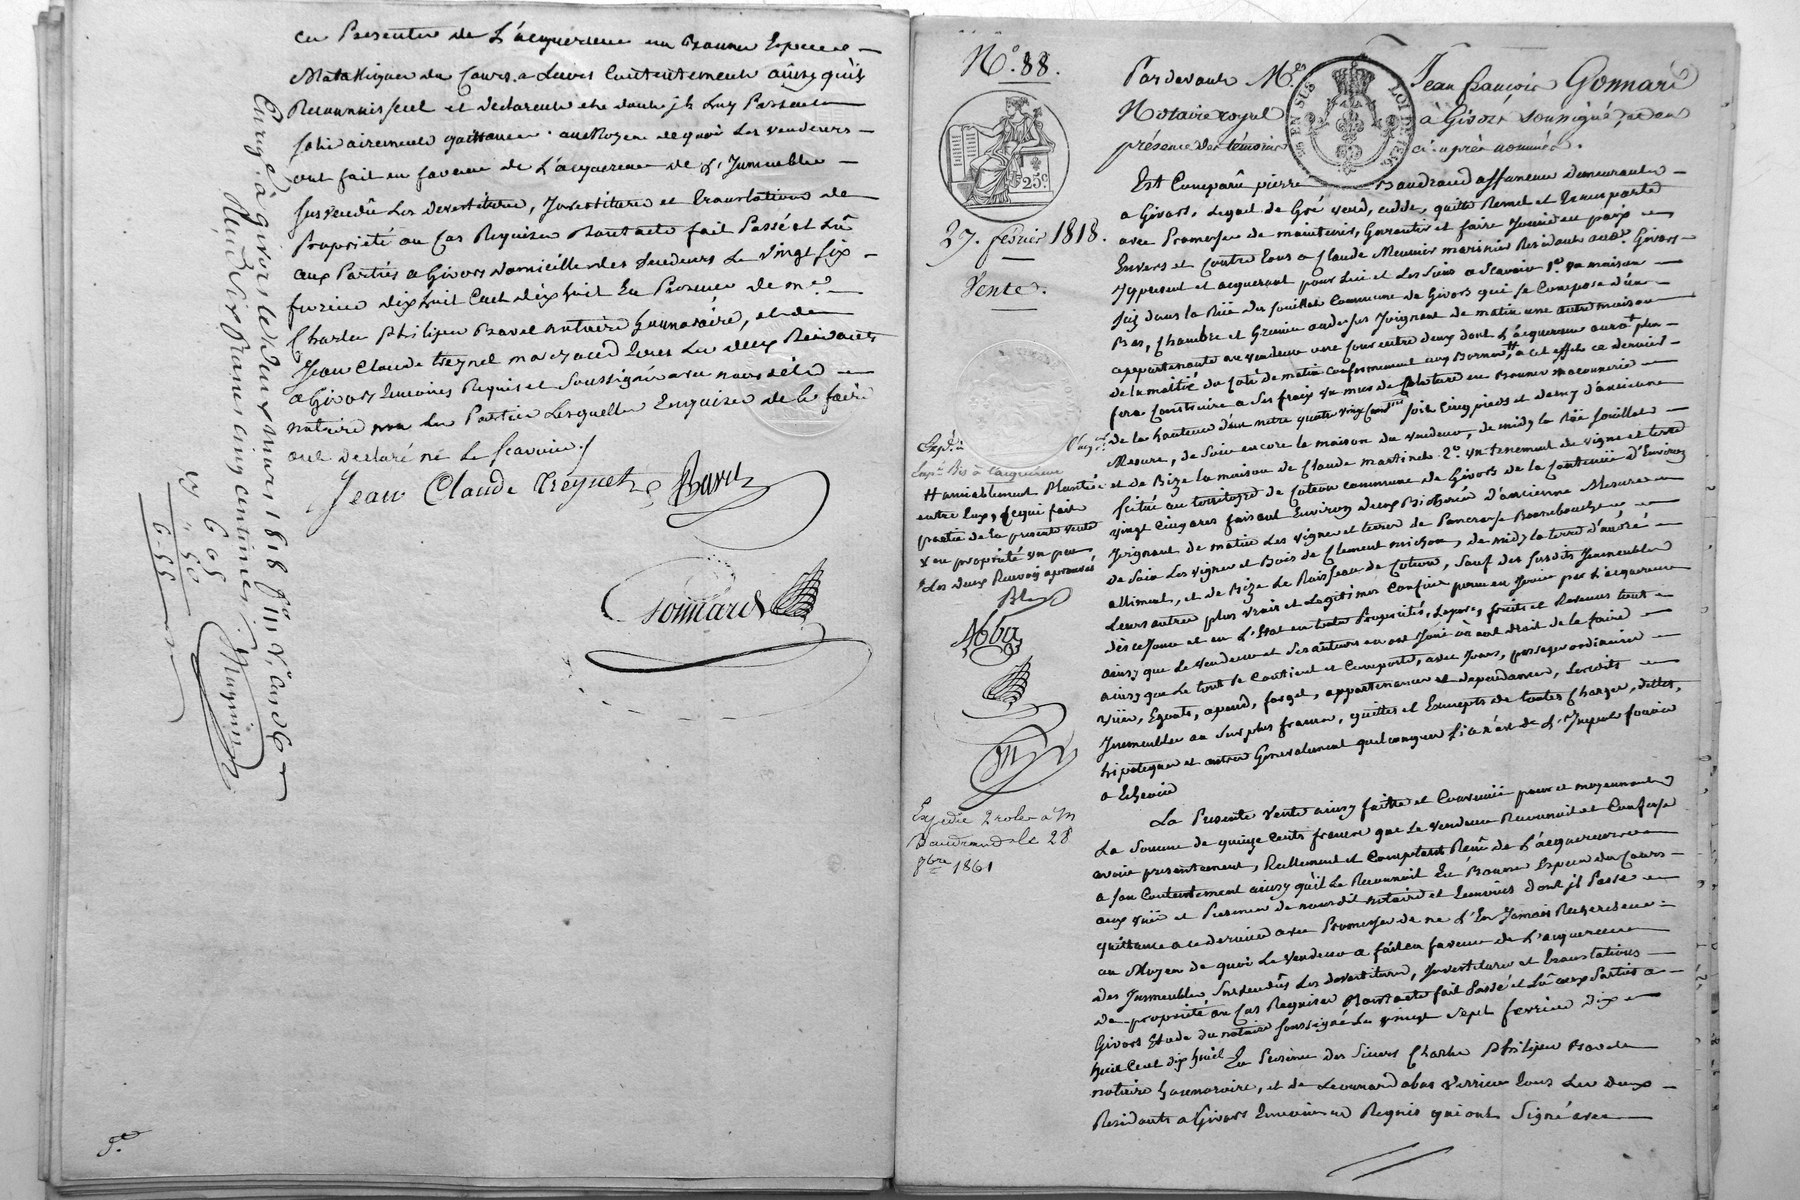 ces Presentes de L'acquereur en Bonnes Especes
Metalliques du Cours a Leurs Contentement ainsy qu'ils
Reconnoissent et declarent etre dont ils Luy Passent
solidairement quittance. au Moyen de quoi Les vendeurs
ont fait en faveur de L'acquereur de L'Immeuble
susvendû Les devestiture, Investiture et translation de
Propriété au Cas Requises Dont acte fait Passé et Lû
aux Parties a Givors domicille des vendeurs Le vingt six
fevrier dix huit Cent dix huit En Presence de Me
Charles Philipes Bavet notaire honnoraire, et de
Jean Claude Treynet marchand tous Les deux Residants
a Givors temoins Requis et Soussignés avec nous dit
notaire non Les Parties Lesquelles Enquises de le faire
ont declaré ne Le Scavoir
Jean Claude Treynet Bavet
Gonnard
Enregé à Givors le deux mars 1818
Reçu six francs cinq centimes
6 05
" 60
6 65
N°. 88.
25c
27. fevrier 1818.
Vente.
EN SUS
LOI DE 1816
Pardevant Me Jean françois Gonnard
Notaire royal à Givors soussigné, et en
présence des témoins ci-après nommés.
Est Comparû pierre Baudrand affaneur demeurant
a Givors, Lequel de Gré vend, cedde, quitte Remet et transporte
avec Promesse de maintenir, Garantir et faire Jouir en paix
Envers et Contre tous a Claude Meunier marinier Residant aud. Givors
Icy present et acquerant pour Lui et Les Siens a Scavoir 1° un maison
Sis dans la Rüe des fouillet Commune de Givors qui Se Compose d'un
Bas, Chambre et Grenier au dessus Joignant de matin une autre maison
appartenante au vendeur une Cour entre deux dont L'acquereur aura
de la moitié du Coté de matin conformement aux Bornes a cet effet ce dernier
fera Construire a Ses fraix un mur de Cloture en Bonnes maconnerie
de la hauteur d'un metre quatre vingt Cent. Soit Cinq pieds et demy d'ancienne
Mesure, de Soir encore la maison du vendeur, de midy la Rüe fouillet
et de Bize la maison de Claude martinet 2° un tenement de vigne et terre
scitué au territoire de Coteon commune de Givors de la Contenüe d'Environ
vingt Cinq ares faisant Environ deux Bicherées d'ancienne Mesure
Joignant de matin Les vignes et terres de Pancrasse Bonnebouche
de Soir Les vignes et Bois de Clement michon, de midy la terre d'andré
alliment, et de Bize Le Ruisseau de Coteon, Sauf des susdits Immeubles
Leurs autres plus vrais et Legitimes Confins pour en Jouir par L'acquereur
dès ce Jour et en L'Etat en toute Propriétés, Loyers, fruits et Revenus tout
ainsy que Le vendeur et Ses auteurs en ont Joui où ont droit de le faire
ainsy que Le tout Se Contient et Comporte, avec Jours, passages ordinaires
vües, Egouts, apend, forget, appartenances et dependances, Lesdits
Immeubles au Surplus francs, quittes et Exempts de toutes Charges, dettes,
hipoteques et autres Generalement quelconques Si ce n'est de L'Impot foncier
a Echeoir
La Presente Vente ainsy faitte et Convenüe pour et moyennant
La Somme de quinze Cents francs que Le vendeur Reconnoit et Confesse
avoir presentement, Reellement et Comptant Reçu de L'acquereur
a Son Contentement ainsy qu'il Le Reconnoit En Bonnes Especes du Cours
aux vües et Presence de nous dit notaire et temoins dont il Passe
quittance a ce dernier avec Promesse de ne L'En Jamais Rechercher
au Moyen de quoi Le vendeur a fait en faveur de L'acquereur
des Immeubles Susvendûs Les devestiture, Investiture et translations
de propriété au Cas Requises Dont acte fait Passé et Lû aux Parties a
Givors Etude du notaire soussigné Le vingt Sept fevrier dix
huit Cent dix huit En Presence des Sieurs Charles Philipes Bavet
notaire honnoraire, et de Leonnard abas verrier tous Les deux
Residants a Givors temoins Requis qui ont Signé avec
amiablement Plantée
entre Eux, ce qui fait
partie de la presente vente
Les deux Renvois aprouvés
Expedié 2 roles à M
Baudrand le 28
9bre 1861